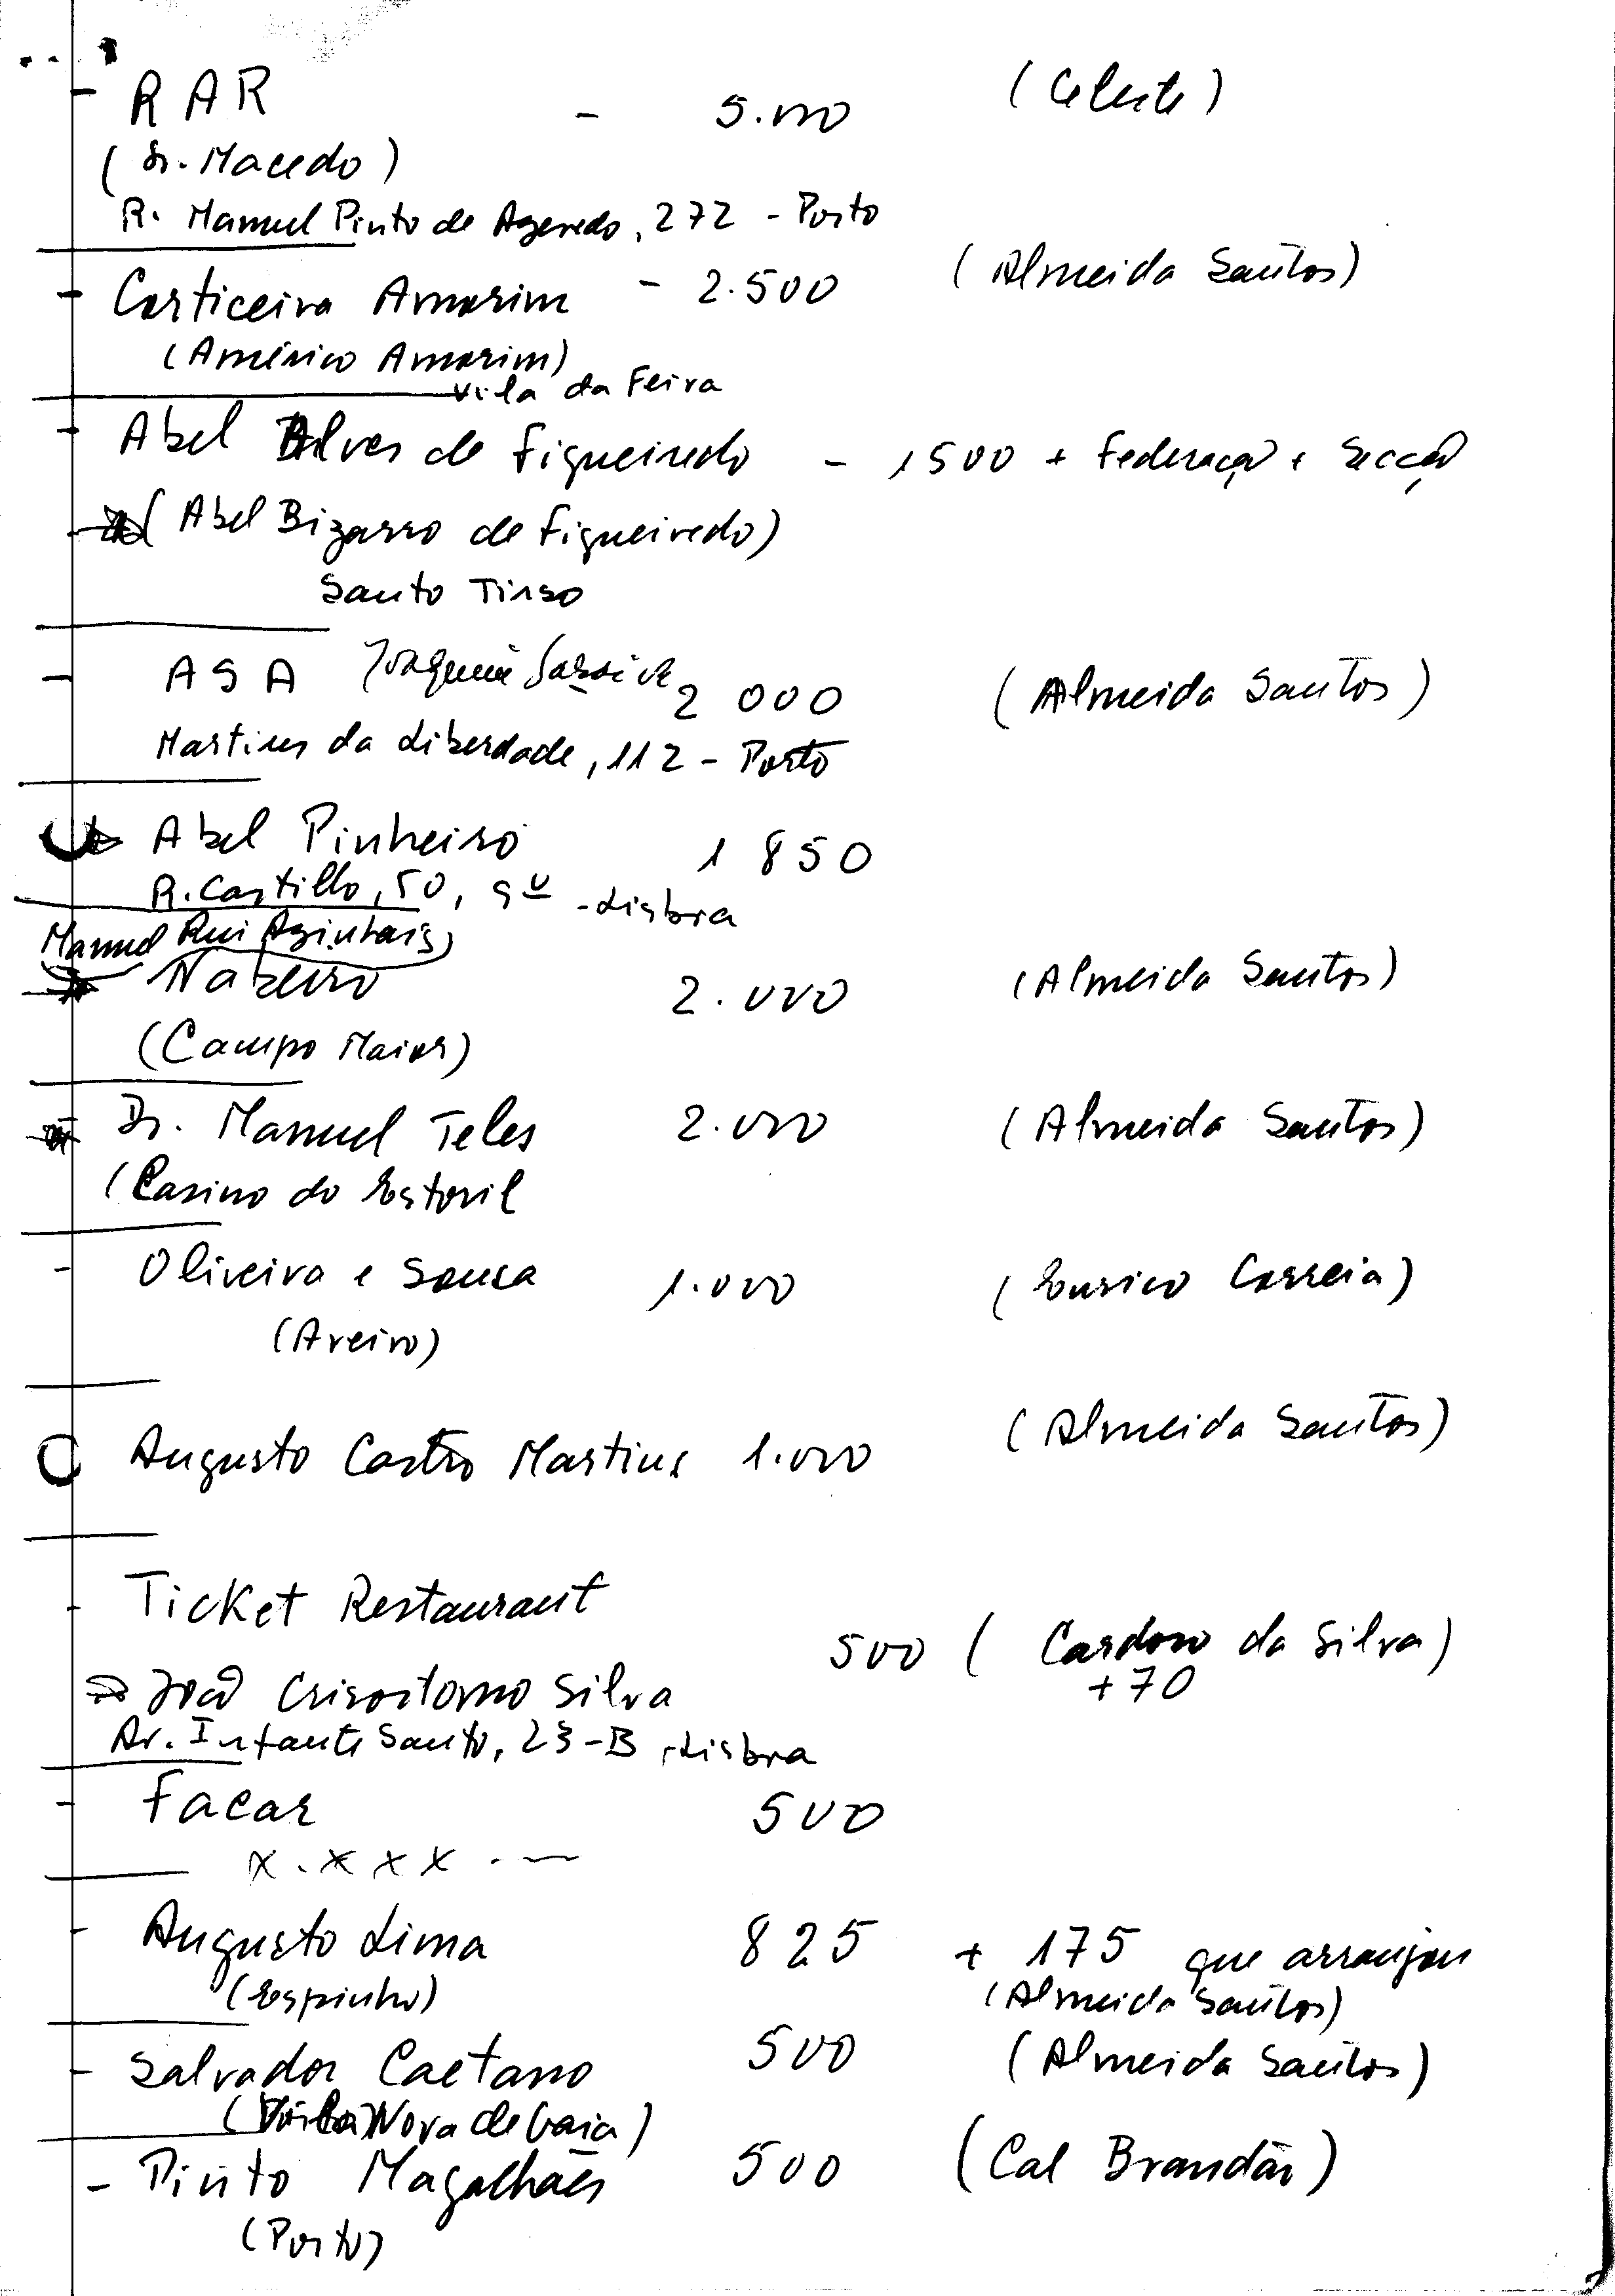 - RAR - 5.000 (Celeste)
(Dr. Macedo)
R. Manuel Pinto de Azevedo, 272 - Porto
- Corticeira Amorim - 2.500 (Almeida Santos)
(Américo Amorim)
Vila da Feira
- Abel Alves de Figueiredo - 1500 + Federação e Secção
(Abel Bizarro de Figueiredo)
Santo Tirso
- ASA Joaquim 2 000 (Almeida Santos)
Martires da Liberdade, 112 - Porto
Abel Pinheiro 1 850
R. Castilho, 50, 9º - Lisboa
Manuel Rui Azinhais
Nabeiro 2.000 (Almeida Santos)
(Campo Maior)
Dr. Manuel Teles 2.000 (Almeida Santos)
(Casino do Estoril
- Oliveira e Sousa 1.000 (Eurico Correia)
(Aveiro)
Augusto Castro Martins 1.000 (Almeida Santos)
- Ticket Restaurant
500 (Cardoso da Silva)
+70
João Crisostomo Silva
Av. Infante Santo, 23-B, Lisboa
- Facar 500
x.xxx.—
- Augusto Lima 825 + 175 que arranjou
(Espinho) (Almeida Santos)
- Salvador Caetano 500 (Almeida Santos)
(Vila Nova de Gaia)
- Pinto Magalhães 500 (Cal Brandão)
(Porto)